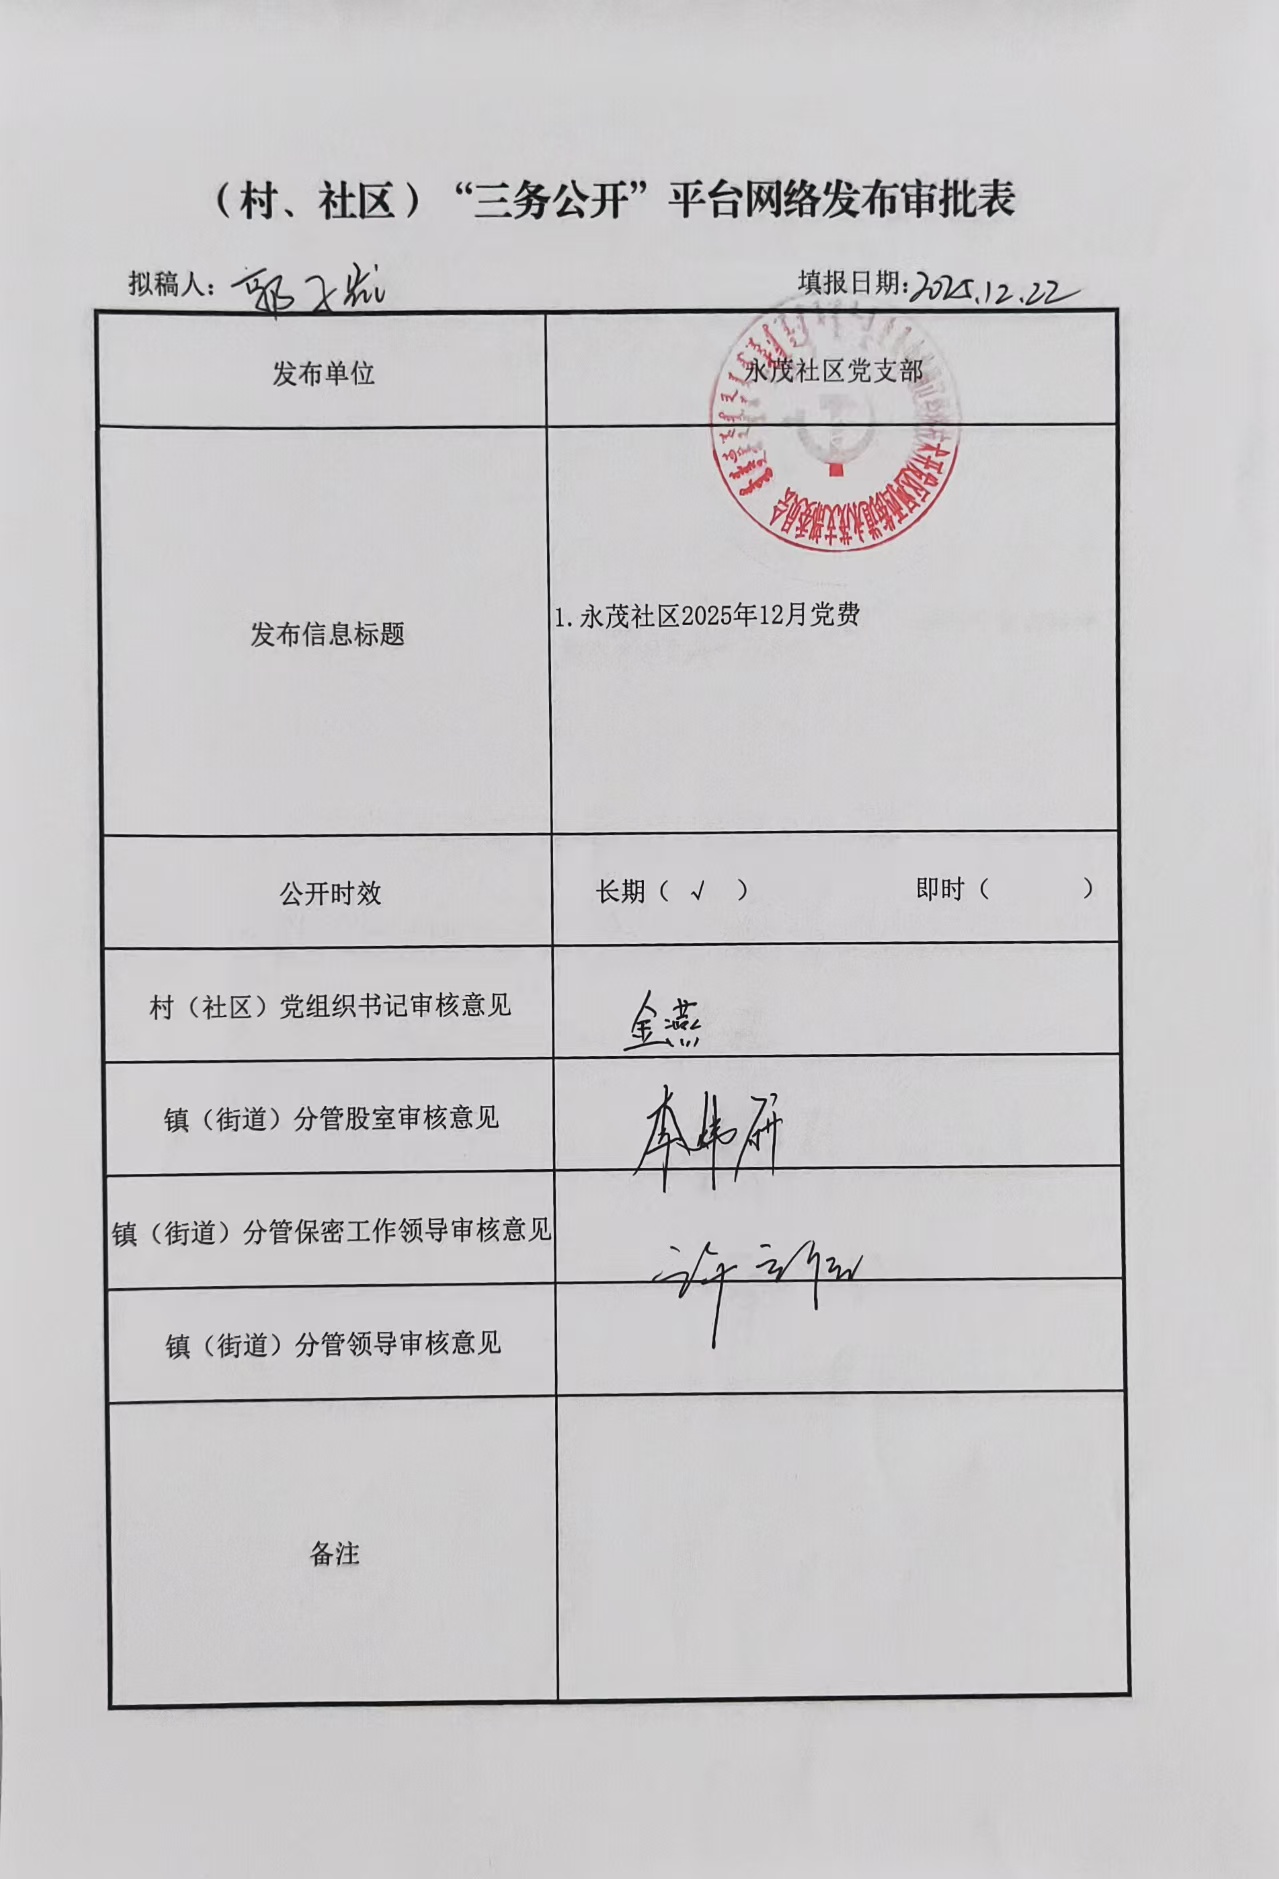 （村、社区）“三务公开”平台网络发布审批表
拟稿人：郭
填报日期：2025.12.22
发布单位
永茂社区党支部
发布信息标题
1.永茂社区2025年12月党费
公开时效
长期（ √ ）
即时（ ）
村（社区）党组织书记审核意见
金燕
镇（街道）分管股室审核意见
李炜妍
镇（街道）分管保密工作领导审核意见
许
镇（街道）分管领导审核意见
备注